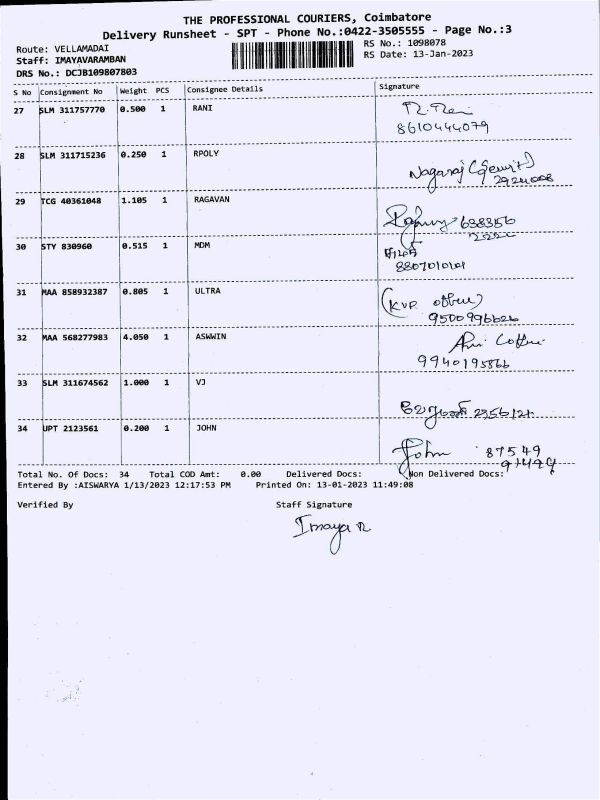 THE PROFESSIONAL COURIERS, Coimbatore
Delivery Runsheet - SPT - Phone No.:0422-3505555 - Page No.:3
Route: VELLAMADAI
Staff: IMAYAVARAMBAN
DRS No.: DCJB109807803
RS No.: 1098078
RS Date: 13-Jan-2023
S No Consignment No Weight PCS Consignee Details Signature
27 SLM 311757770 0.500 1 RANI
8610444079
28 SLM 311715236 0.250 1 RPOLY
Nagaraj
29 TCG 40361048 1.105 1 RAGAVAN
638356
30 STY 830960 0.515 1 MDM
31 MAA 858932387 0.805 1 ULTRA
(KVP office)
9500996626
32 MAA 568277983 4.050 1 ASWWIN
9940195866
33 SLM 311674562 1.000 1 VJ
34 UPT 2123561 0.200 1 JOHN
John 87549
91494
Total No. Of Docs: 34 Total COD Amt: 0.00 Delivered Docs: Non Delivered Docs:
Entered By :AISWARYA 1/13/2023 12:17:53 PM Printed On: 13-01-2023 11:49:08
Verified By Staff Signature
Imaya R